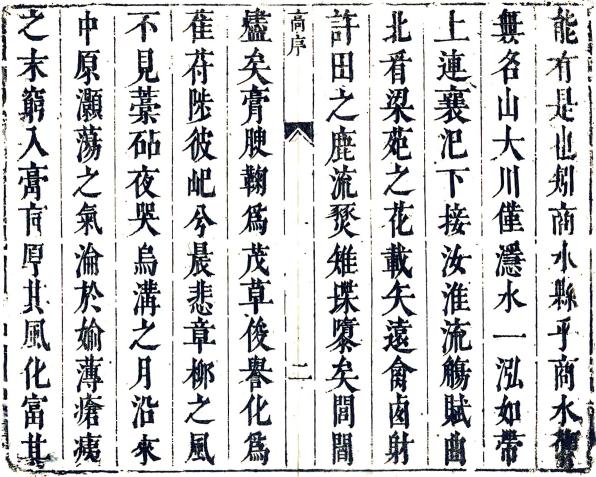 能有是也矧商水縣乎商水
無名山大川僅濦水一泓如帶
上連襄汜下接汝淮流觴賦曲
北看梁苑之花載矢遠禽鹵射
許田之鹿流熒雉堞嘹矣閭閻
高序
二
盡矣膏腴鞠為茂草俊譽化為
萑苻陟彼屺兮晨悲章柳之風
不見藁砧夜哭烏溝之月沿來
中原灝蕩之氣淪於婾薄瘡痍
之末窮入膏肓厚其風化富其